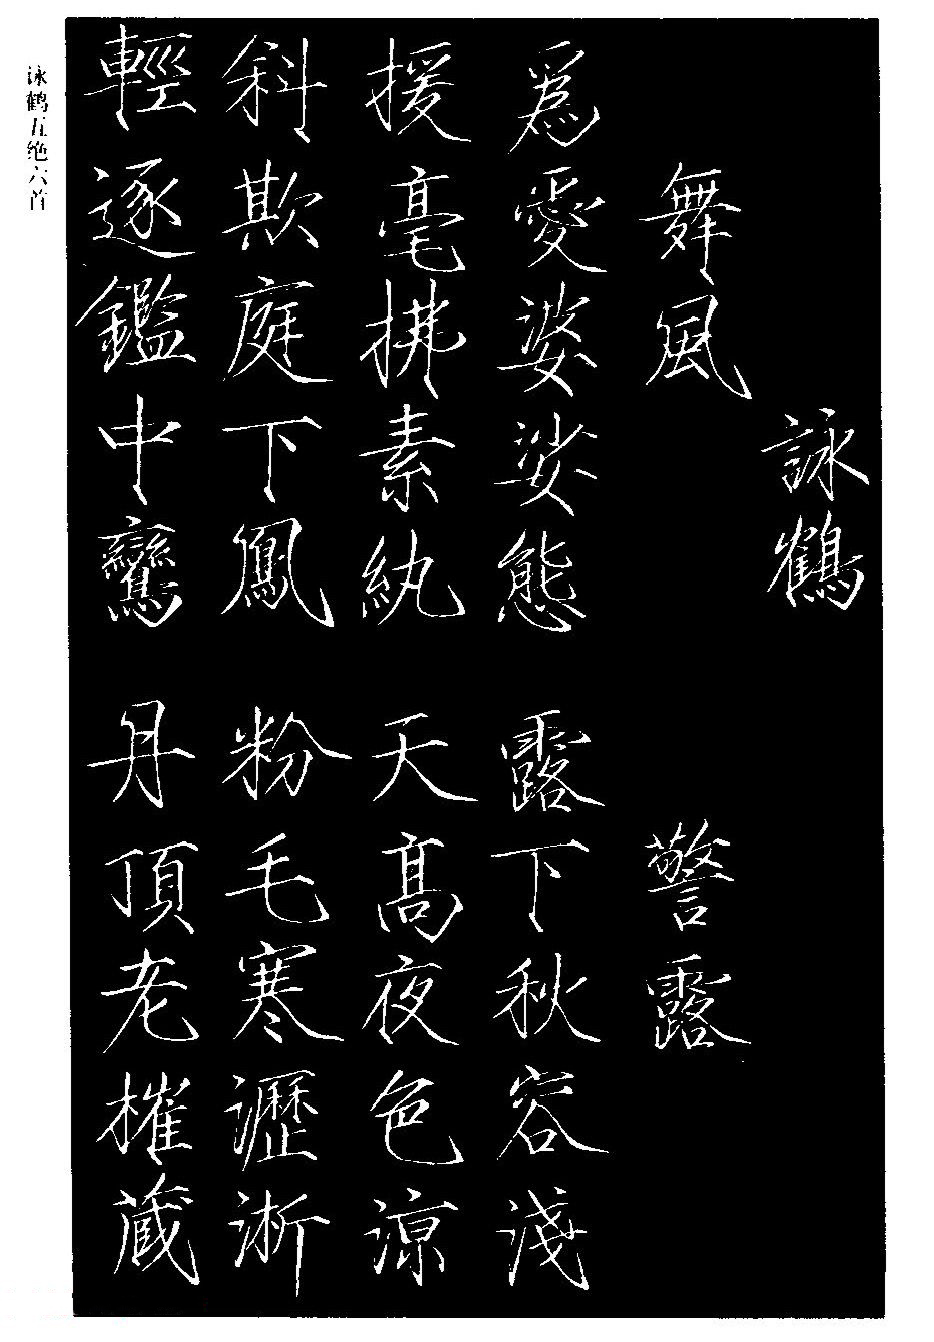 詠鶴
舞風
爲愛婆娑態
援毫拂素紈
斜欺庭下鳳
輕逐鑑中鸞
警露
露下秋容淺
天高夜色涼
粉毛寒瀝淅
丹頂老摧藏
咏鹤五绝六首